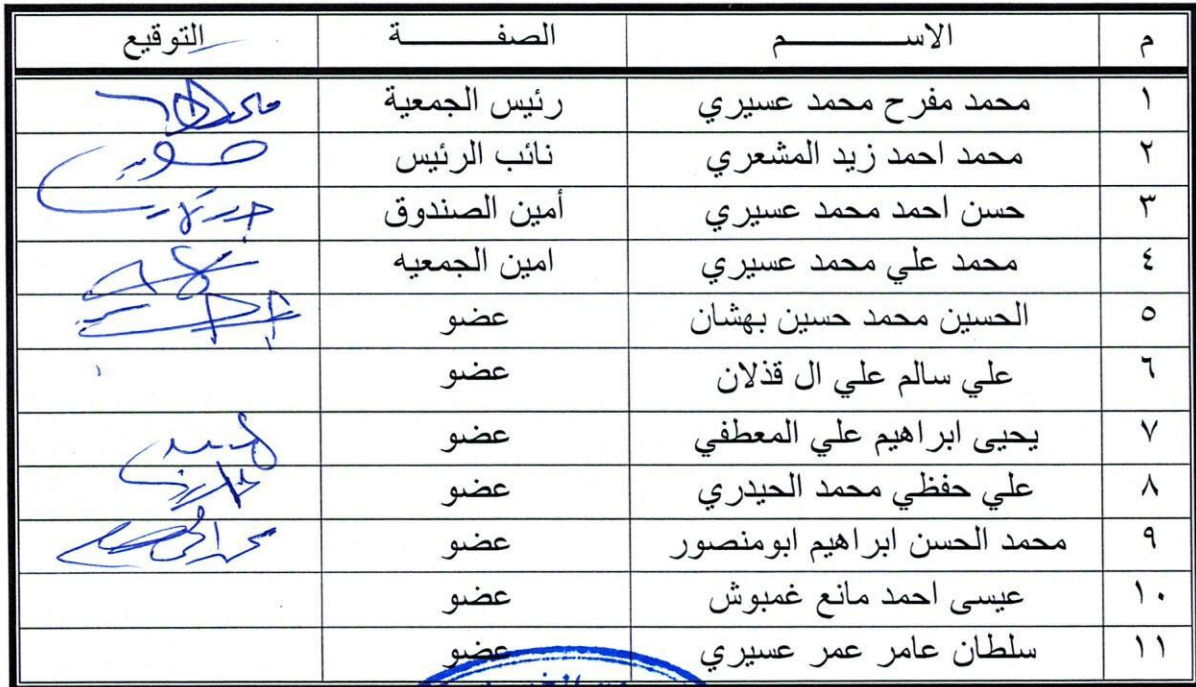 م الاســــــــم الصفــــــــة التوقيع
١ محمد مفرح محمد عسيري رئيس الجمعية
٢ محمد احمد زيد المشعري نائب الرئيس
٣ حسن احمد محمد عسيري أمين الصندوق
٤ محمد علي محمد عسيري امين الجمعيه
٥ الحسين محمد حسين بهشان عضو
٦ علي سالم علي ال قذلان عضو
٧ يحيى ابراهيم علي المعطفي عضو
٨ علي حفظي محمد الحيدري عضو
٩ محمد الحسن ابراهيم ابومنصور عضو
١٠ عيسى احمد مانع غمبوش عضو
١١ سلطان عامر عمر عسيري عضو